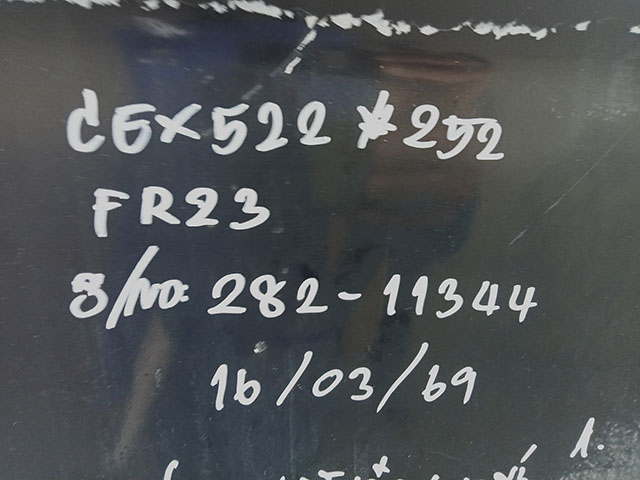 CEX522 *252
FR23
S/No: 282-11344
16/03/69
1.